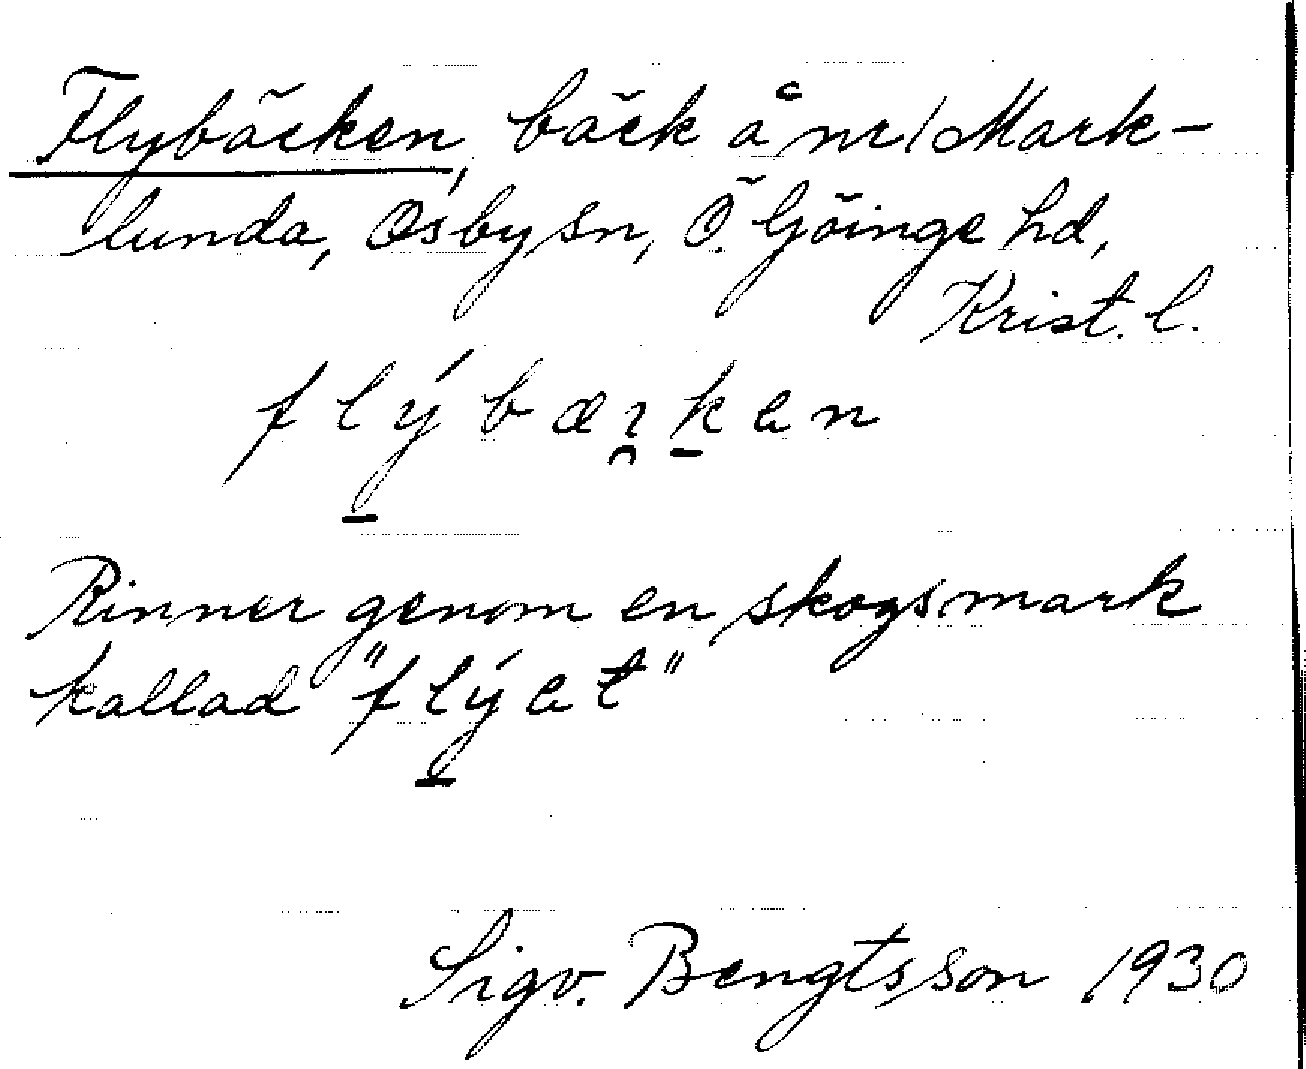 Flybäcken, bäck å nr 1 Mark-
lunda, Osby sn, Ö. Göinge hd,
Krist. l.
flýbæı̯ken
Rinner genom en skogsmark
kallad "flýet"
Sigv. Bengtsson 1930